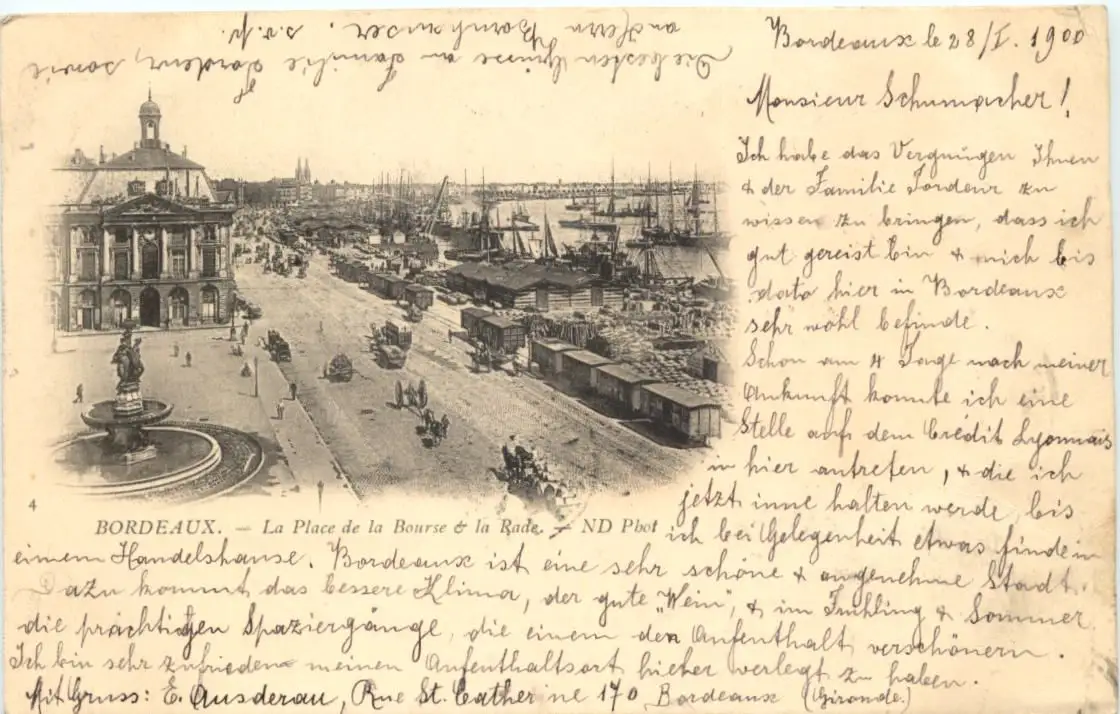 Bordeaux le 28/I. 1900
Monsieur Schumacher!
Ich habe das Vergnügen Ihnen
& der Familie Tordeur zu
wissen zu bringen, dass ich
gut gereist bin & mich bis
dato hier in Bordeaux
sehr wohl befinde.
Schon am 4 Tage nach meiner
Ankunft konnte ich eine
Stelle auf dem Crédit Lyonnais
in hier antreten, & die ich
jetzt inne halten werde, bis
ich bei Gelegenheit etwas finde in
einem Handelshause. Bordeaux ist eine sehr schöne & angenehme Stadt.
Dazu kommt das bessere Klima, der gute "Wein", & im Frühling & Sommer
die prächtigen Spaziergänge, die einem den Aufenthalt verschönern.
Ich bin sehr zufrieden meinen Aufenthaltsort hieher verlegt zu haben.
Mit Gruss: E. Ausderau, Rue St. Catherine 170 Bordeaux (Gironde.)
Die besten Grüsse an Familie Tordeur, sowie
an Herrn Bornhauser. s.v.p.
4
BORDEAUX. — La Place de la Bourse & la Rade. — ND Phot